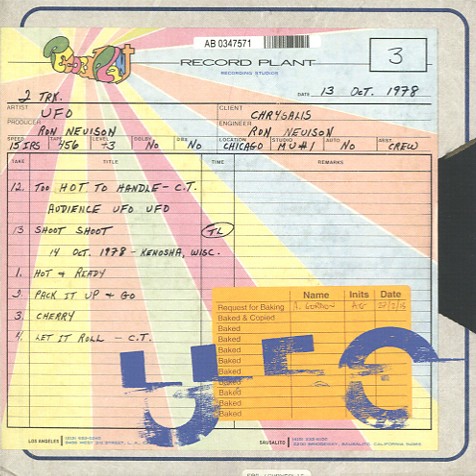 AB 0347571
Record Plant
RECORD PLANT
RECORDING STUDIOS
3
2 TRK.
DATE 13 OCT. 1978
ARTIST UFO CLIENT CHRYSALIS
PRODUCER RON NEVISON ENGINEER RON NEVISON
SPEED 15 IPS TAPE 456 LEVEL +3 DOLBY NO DBX NO LOCATION CHICAGO STUDIO MU#1 AUTO NO ASST. CREW
TAKE TITLE TIME REMARKS
12. TOO HOT TO HANDLE - C.T.
AUDIENCE UFO UFO
13 SHOOT SHOOT TL
14 OCT. 1978 - KENOSHA, WISC.
1. HOT & READY
2. PACK IT UP & GO
3. CHERRY
4. LET IT ROLL - C.T.
Name Inits Date
Request for Baking
Baked & Copied
Baked
Baked
Baked
Baked
Baked
Baked
Baked
Baked
Baked
UFO
LOS ANGELES
SAUSALITO